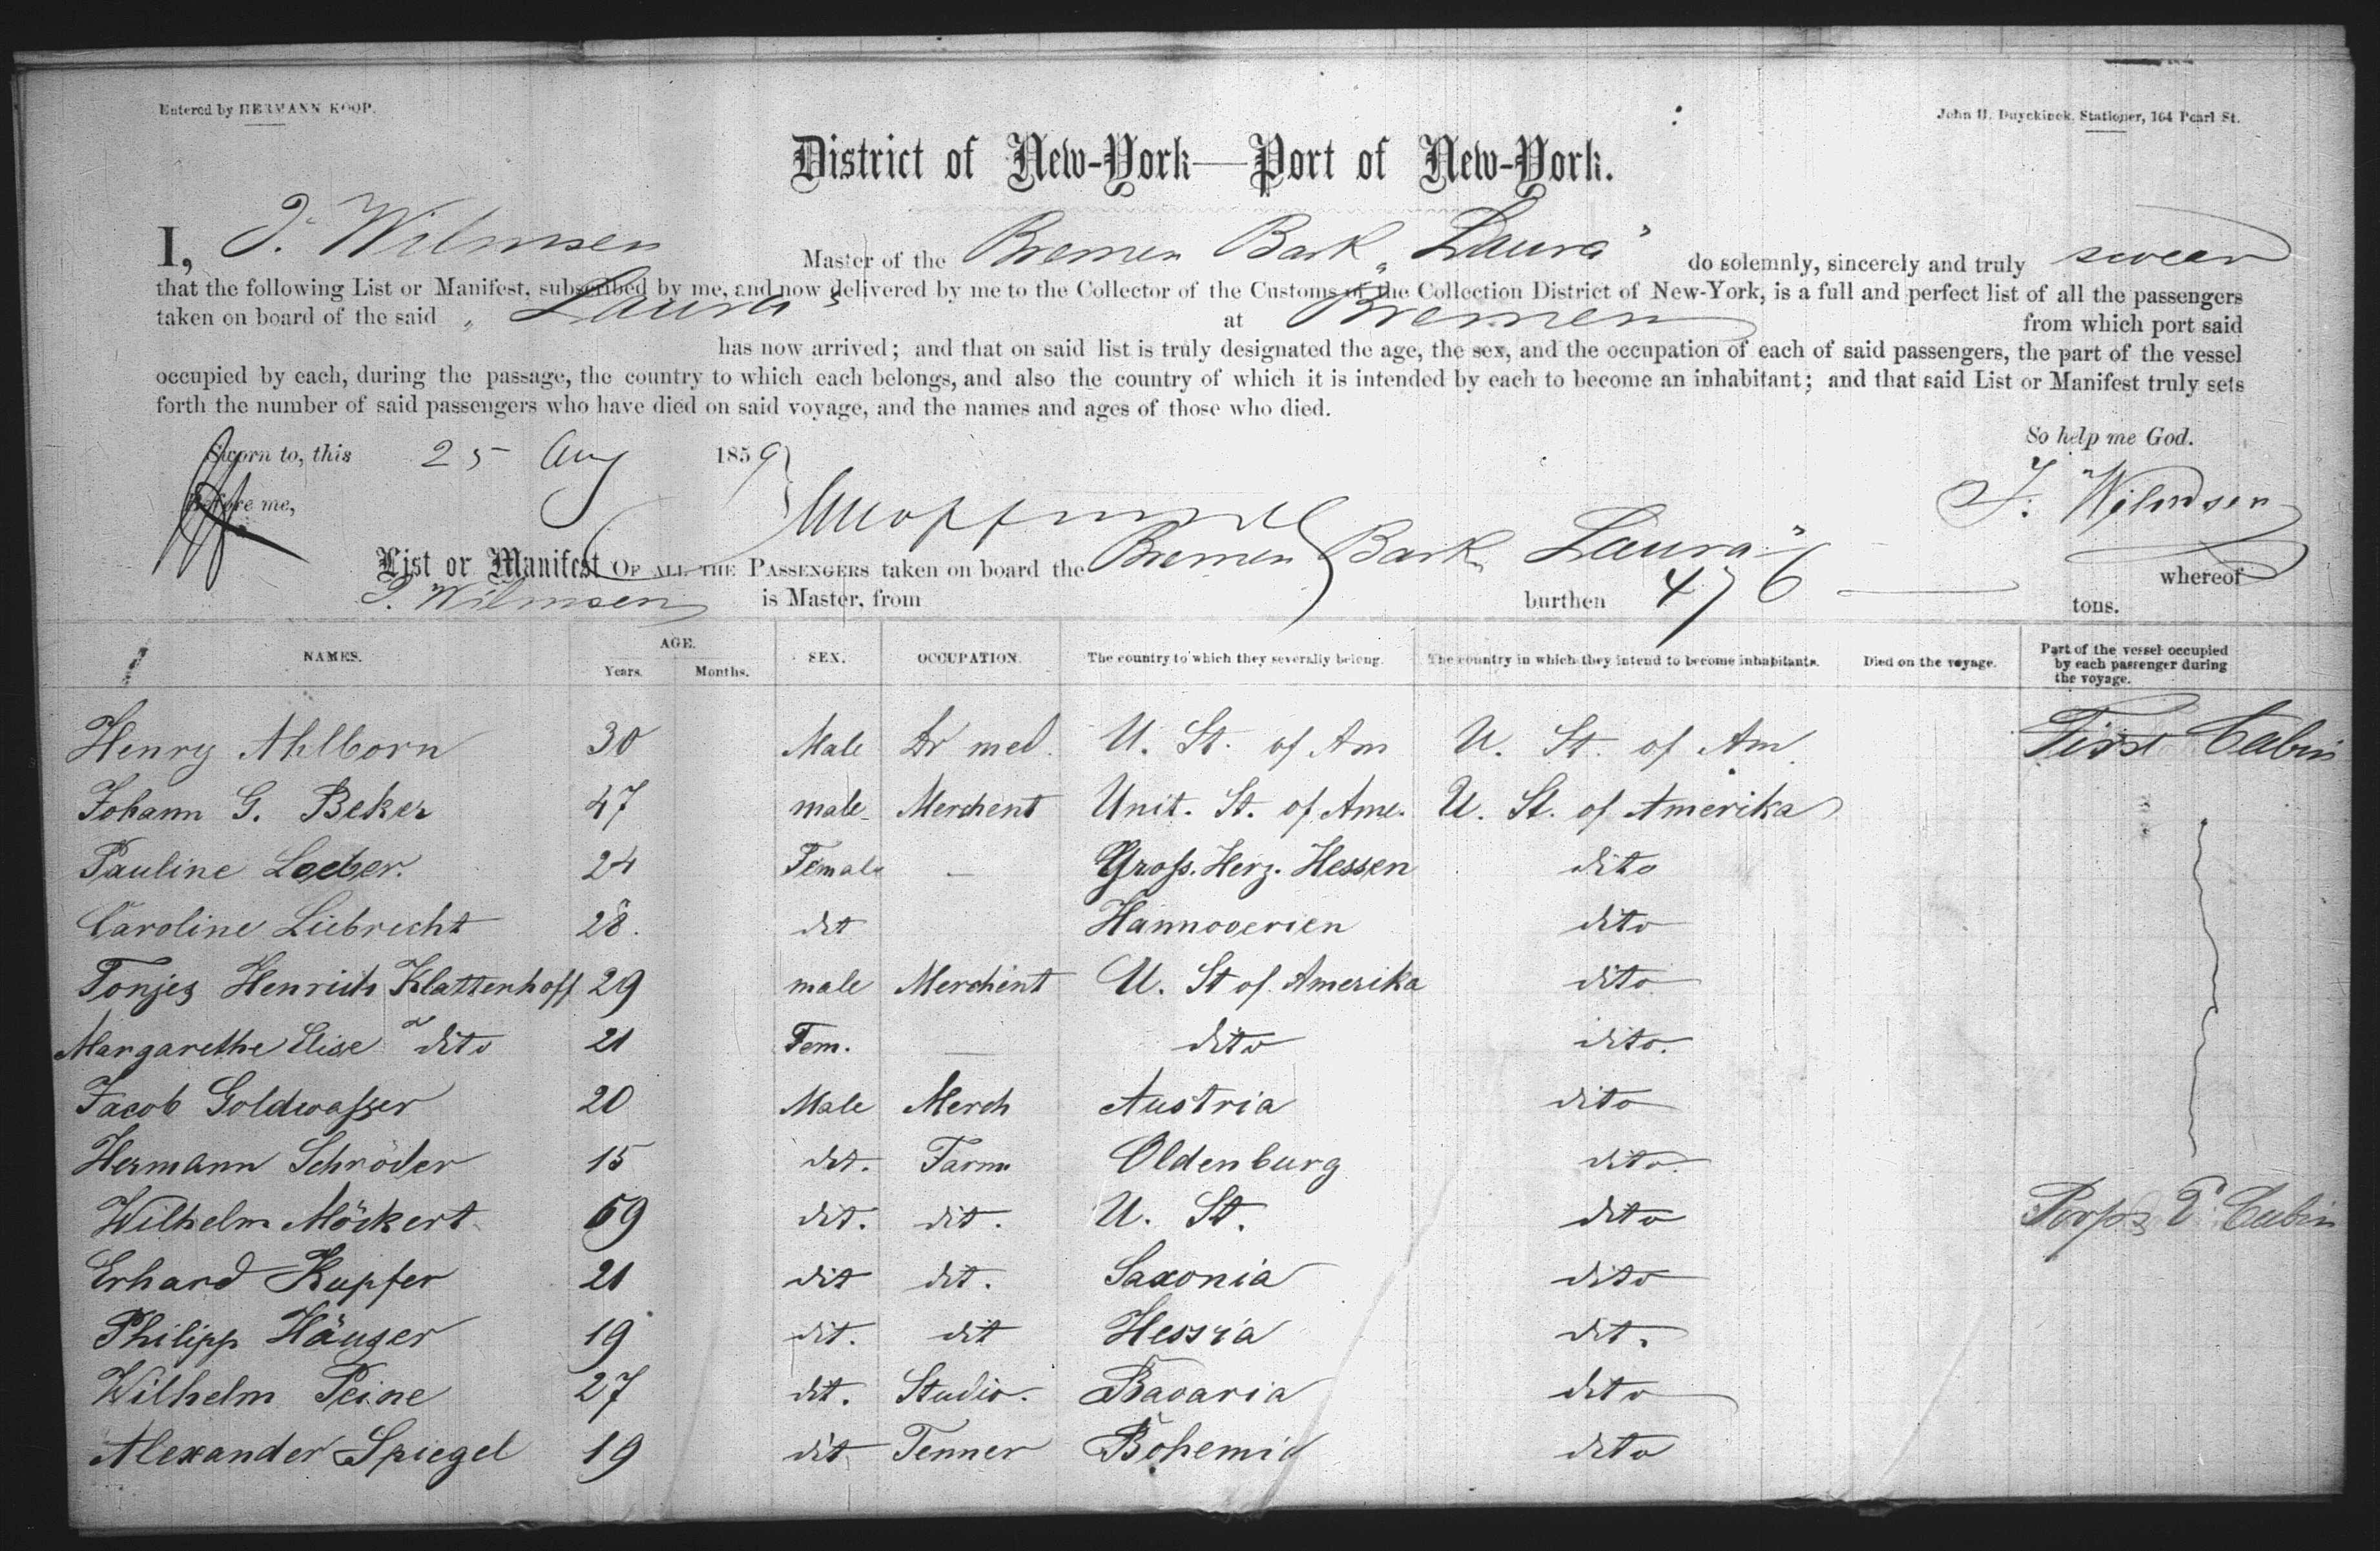 Entered by HERMANN KOOP.
John H. Duyckinck, Stationer, 164 Pearl St.
District of New-York—Port of New-York.
I, Wilmsen Master of the Bremen Bark „Laura" do solemnly, sincerely and truly swear
that the following List or Manifest, subscribed by me, and now delivered by me to the Collector of the Customs of the Collection District of New-York, is a full and perfect list of all the passengers
taken on board of the said „Laura" at Bremen from which port said
has now arrived; and that on said list is truly designated the age, the sex, and the occupation of each of said passengers, the part of the vessel
occupied by each, during the passage, the country to which each belongs, and also the country of which it is intended by each to become an inhabitant; and that said List or Manifest truly sets
forth the number of said passengers who have died on said voyage, and the names and ages of those who died.
So help me God.
Sworn to, this 25 Aug 1859
Before me,
Wilmsen
List or Manifest OF ALL THE PASSENGERS taken on board the Bremen Bark „Laura" whereof
Wilmsen is Master, from burthen 476 tons.
NAMES. AGE. Years. Months. SEX. OCCUPATION. The country to which they severally belong. The country in which they intend to become inhabitants. Died on the voyage. Part of the vessel occupied by each passenger during the voyage.
Henry Ahlborn 30 Male Dr med. U. St. of Am U. St. of Am. First Cabin
Johann G. Beker 47 male Merchent Unit. St. of Ame. U. St. of Amerika
Pauline Loeber. 24 Female — Gross. Herz. Hessen dito
Caroline Liebrecht 28. dit Hannoverien dito
Tonjes Henrich Klattenhoff 29 male Merchent U. St of Amerika dito
Margarethe Elise dito 21 Fem. — dito dito.
Jacob Goldwasser 20 Male Merch Austria dito
Hermann Schröder 15 dit. Farm Oldenburg dito.
Wilhelm Möckert 69 dit. dit. U. St. dito Cabin
Erhard Kupfer 21 dit dit. Saxonia dito
Philipp Häuser 19 dit. dit Hessia dit.
Wilhelm Peine 27 dit. Studio. Bavaria dito
Alexander Spiegel 19 dit Tenner Bohemia dito